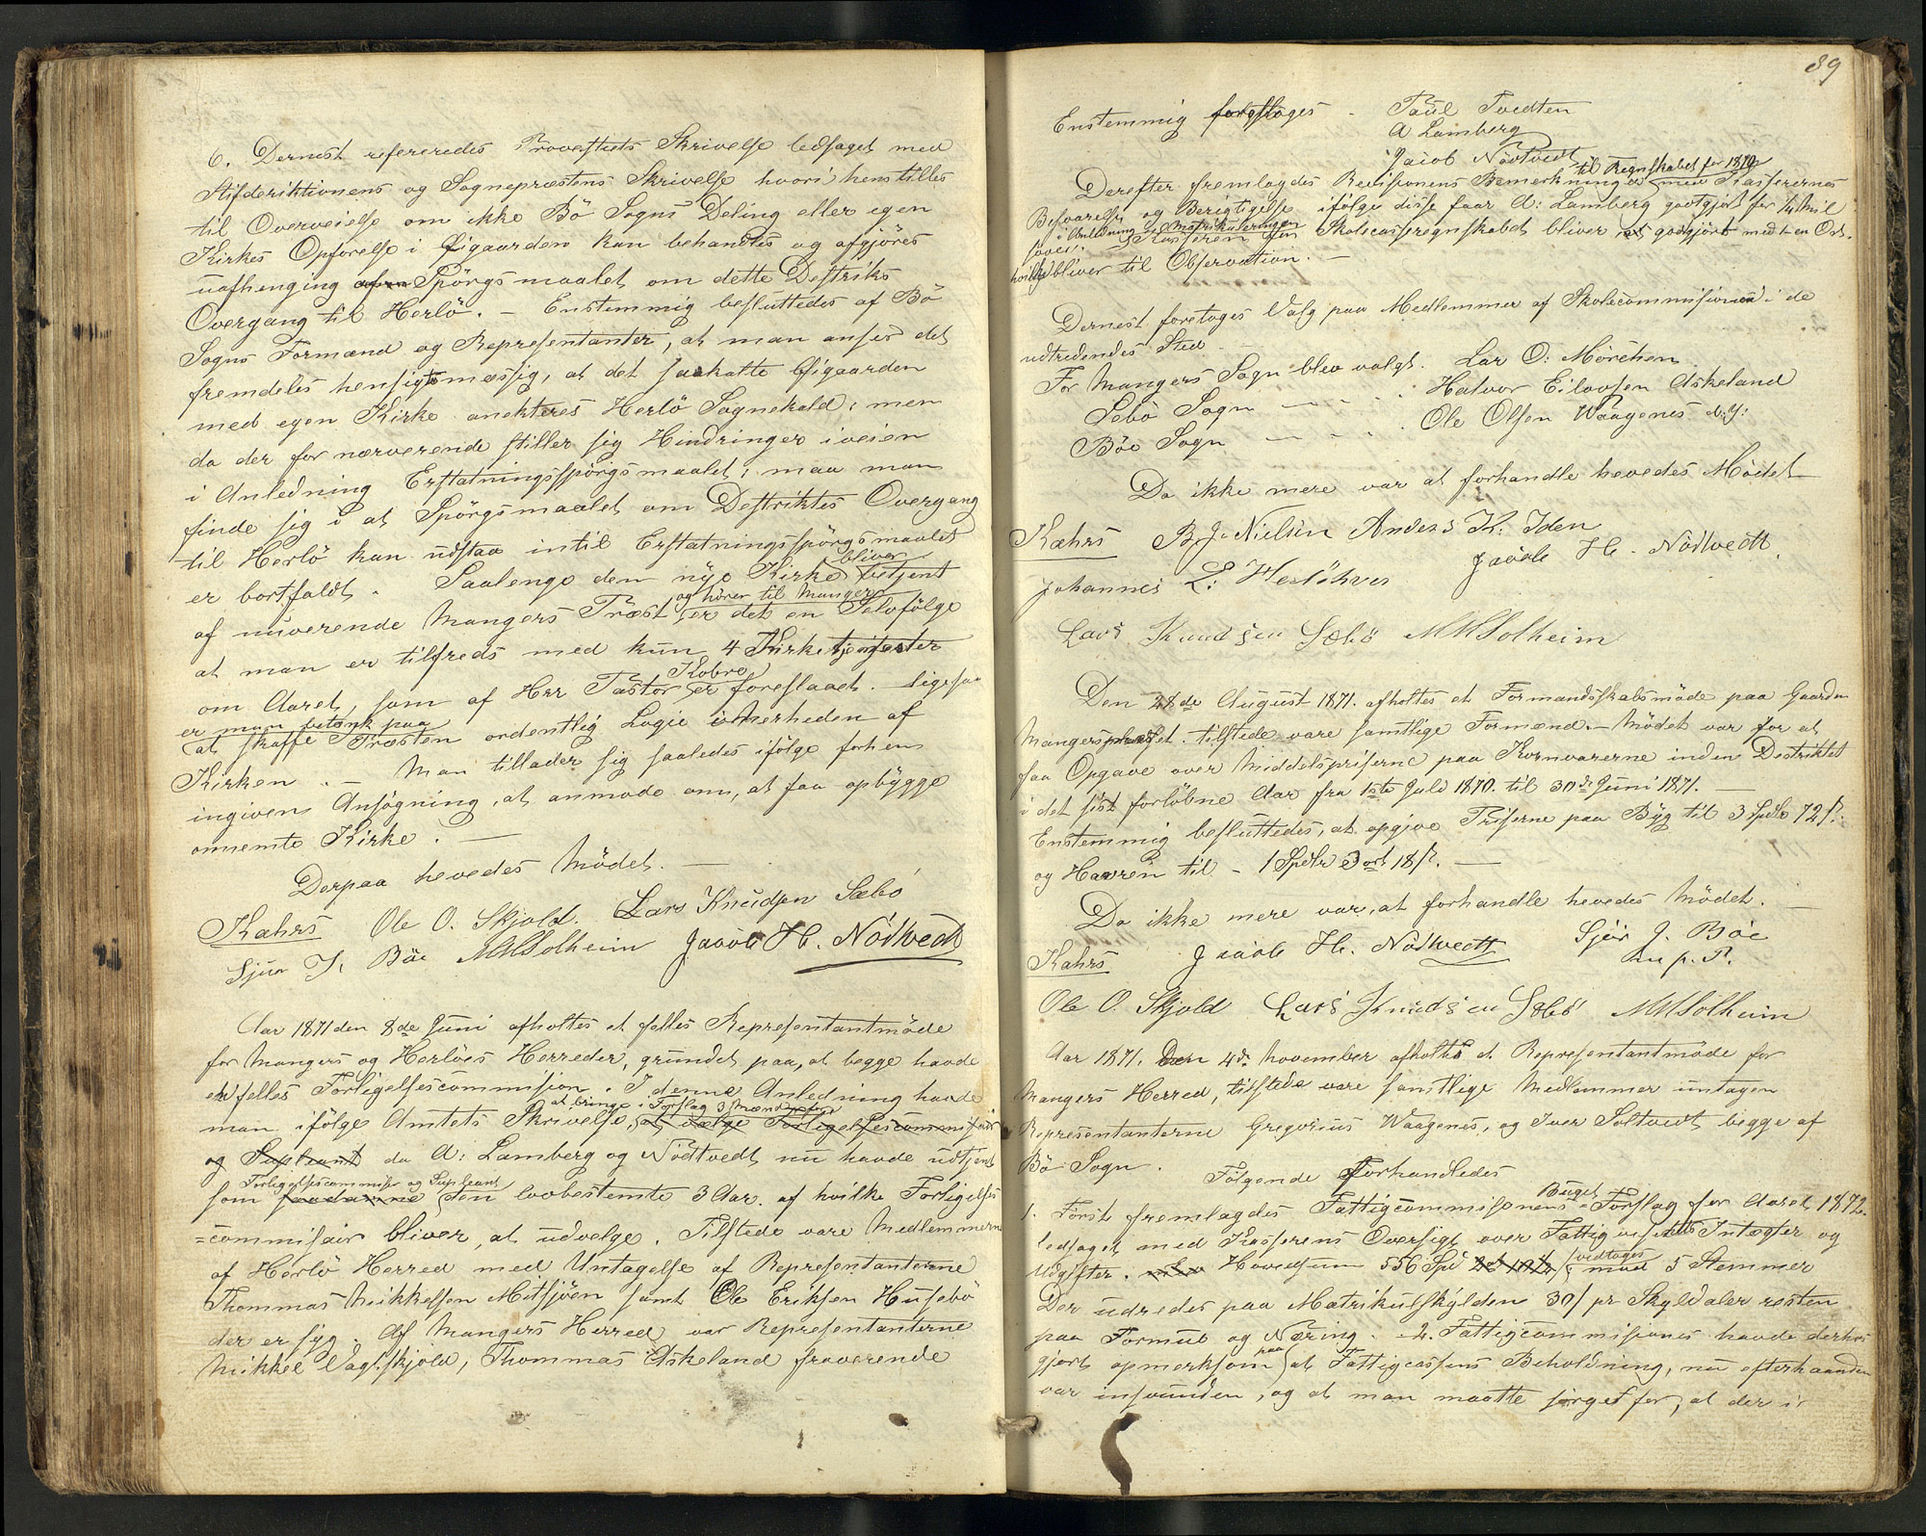 6. Dernest refereredes Provestiets Skrivelse ledsaget med
Stifdiriktionens og Sognepræstens Skrivelse hvori henstilles
til Overveielse om ikke Bö Sogns Deling eller egen
Kirkes Opförelse i Öigaarden kan behandles og afgjöres
uafhenging Spörgsmaalet om dette Destrikts
Overgang til Herlö. – Enstemmig besluttedes af Bö
Sogns Formænd og Representanter, at man anser det
fremdeles hensigtsmæssig, at det saakalte Öigaarden
med egen Kirke anekteres Herlö Sognekald; men
da der for nærverende stiller sig Hindringer iveien
i Anledning Erstatningsspörgsmaalet; maa man
finde sig i at Spörgsmaalet om Destriktes Overgang
til Herlö kan udstaa intil Erstatningsspörgsmaalet
er bortfaldt. Saalenge den nye Kirke bliver betjent
af nuverende Mangers Præst og hörer til Manger er det en Selvfölge
at man er tilfreds med kun 4 Kirketjenester
om Aaret, som af Herr Pastor Kobro er foreslaaet. ligesaa
er man betenk paa
at skaffe Præsten ordentlig Logie i Nerheden af
Kirken. – Man tillader sig saaledes ifölge forhen
ingiven Ansögning, at anmode om, at faa opbygge
omnemte Kirke. –
Derpaa hevedes Mödet. –
Kahrs Ole O. Skjold. Lars Knudsen Sæbö
Sjur J. Böe MMSolheim Jacob H. Nödtvedt
Aar 1871 den 8de Juni afholtes et felles Representantmöde
for Mangers og Herlöes Herreder, grundet paa, at begge havde
et felles Forligelsescommision. I denne Anledning havde
at bringe i Forslag 3 Mænd
man ifölge Amtets Skrivelse, at vælge Forligelsescommisair
og Supleant da A: Lamberg og Nödtvedt nu havde udtjent
Forligelsescommiser og Supleant
som den lovbestemte 3 Aar. af hvilke Forligelses
=commisair bliver, at udvelge. Tilstede vare Medlemmerne
af Herlö Herred med Untagelse af Representanterne
Thommas Mikkelsen Mitsjöen samt Ole Eriksen Husebö
der er syg. Af Mangers Herred var Representanterne
Mikkel Vagtskjold, Thommas Askeland fraverende
89
Enstemmig foreslages. Paul Tvedten
A Lamberg
Jacob Nödtvedt
til Regnskabet for 1870
Derefter fremlagdes Revisionens Bemerkninger med Kasserernes
Besvarelse og Berigtigelse ifölge disse faar A: Lamberg godtgjort for
i Anledning Matrikuleringen
Kasseren for Skolecasseregnskabet bliver godgjort med en Ort.
hvilke bliver til Observation. –
Dernest foretages Valg paa Medlemmer af Skolecommisionen i de
udtredendes Sted
For Mangers Sogn blev valgt. Lar O: Mörchen
Sebö Sogn – – – . Halvor Eilevsen Askeland
Böe Sogn – – – . Ole Olsen Waagenes d: y:
Da ikke mere var at forhandle hevedes Mödet
Kahrs B. J. Nielsen Anders K. Iden
Johannes L: Herlöhver Jacob H. Nödtvedt.
Lars Knudsen Sæbö MMSolheim
Den 28de August 1871. afholtes et Formandsskabsmöde paa Gaarden
Mangers tilstede vare samtlige Formænd. – Mödet var for at
faa Opgave over Middelspriserne paa Kornvarerne inden Destriktet
i det sist forlöbne Aar fra 1ste Juli 1870. til 30de Juni 1871. –
Enstemmig besluttedes, at opgive Priserne paa Byg til 3 Spdlr 72 s.
og Havren til – 1 Spdlr 3 ort 18 s. –
Da ikke mere var, at forhandle hevedes Mödet. –
Kahrs Jacob H. Nödtvedt Sjur J. Böe
m. p. P.
Ole O. Skjold Lars Knudsen Sebö MMSolheim
Aar 1871. Den 4de November afholtes et Representantmöde for
Mangers Herred, tilstede vare samtlige Medlemmer untagen
Representanterne Gregorius Waagenes, og Iver Soltvedt begge af
Bö Sogn. Fölgende Forhandledes
1. Först fremlagdes Fattigcommisionens Buget Forslag for Aaret 1872.
ledsaget med Kasserens Oversigt over Fattigvesenets Intægter og
Udgifter. Hovedsum 556 Spd vedtages mod 5 Stemmer
Der udredes paa Matrikulskylden 30 s pr Skyldaler resten
paa Formue og Næring. – 2. Fattigcommisiones havde derhos
gjort opmerksom paa at Fattigcassens Beholdning, nu efterhaanden
var insvunden, og at man maatte sörget for, at der i